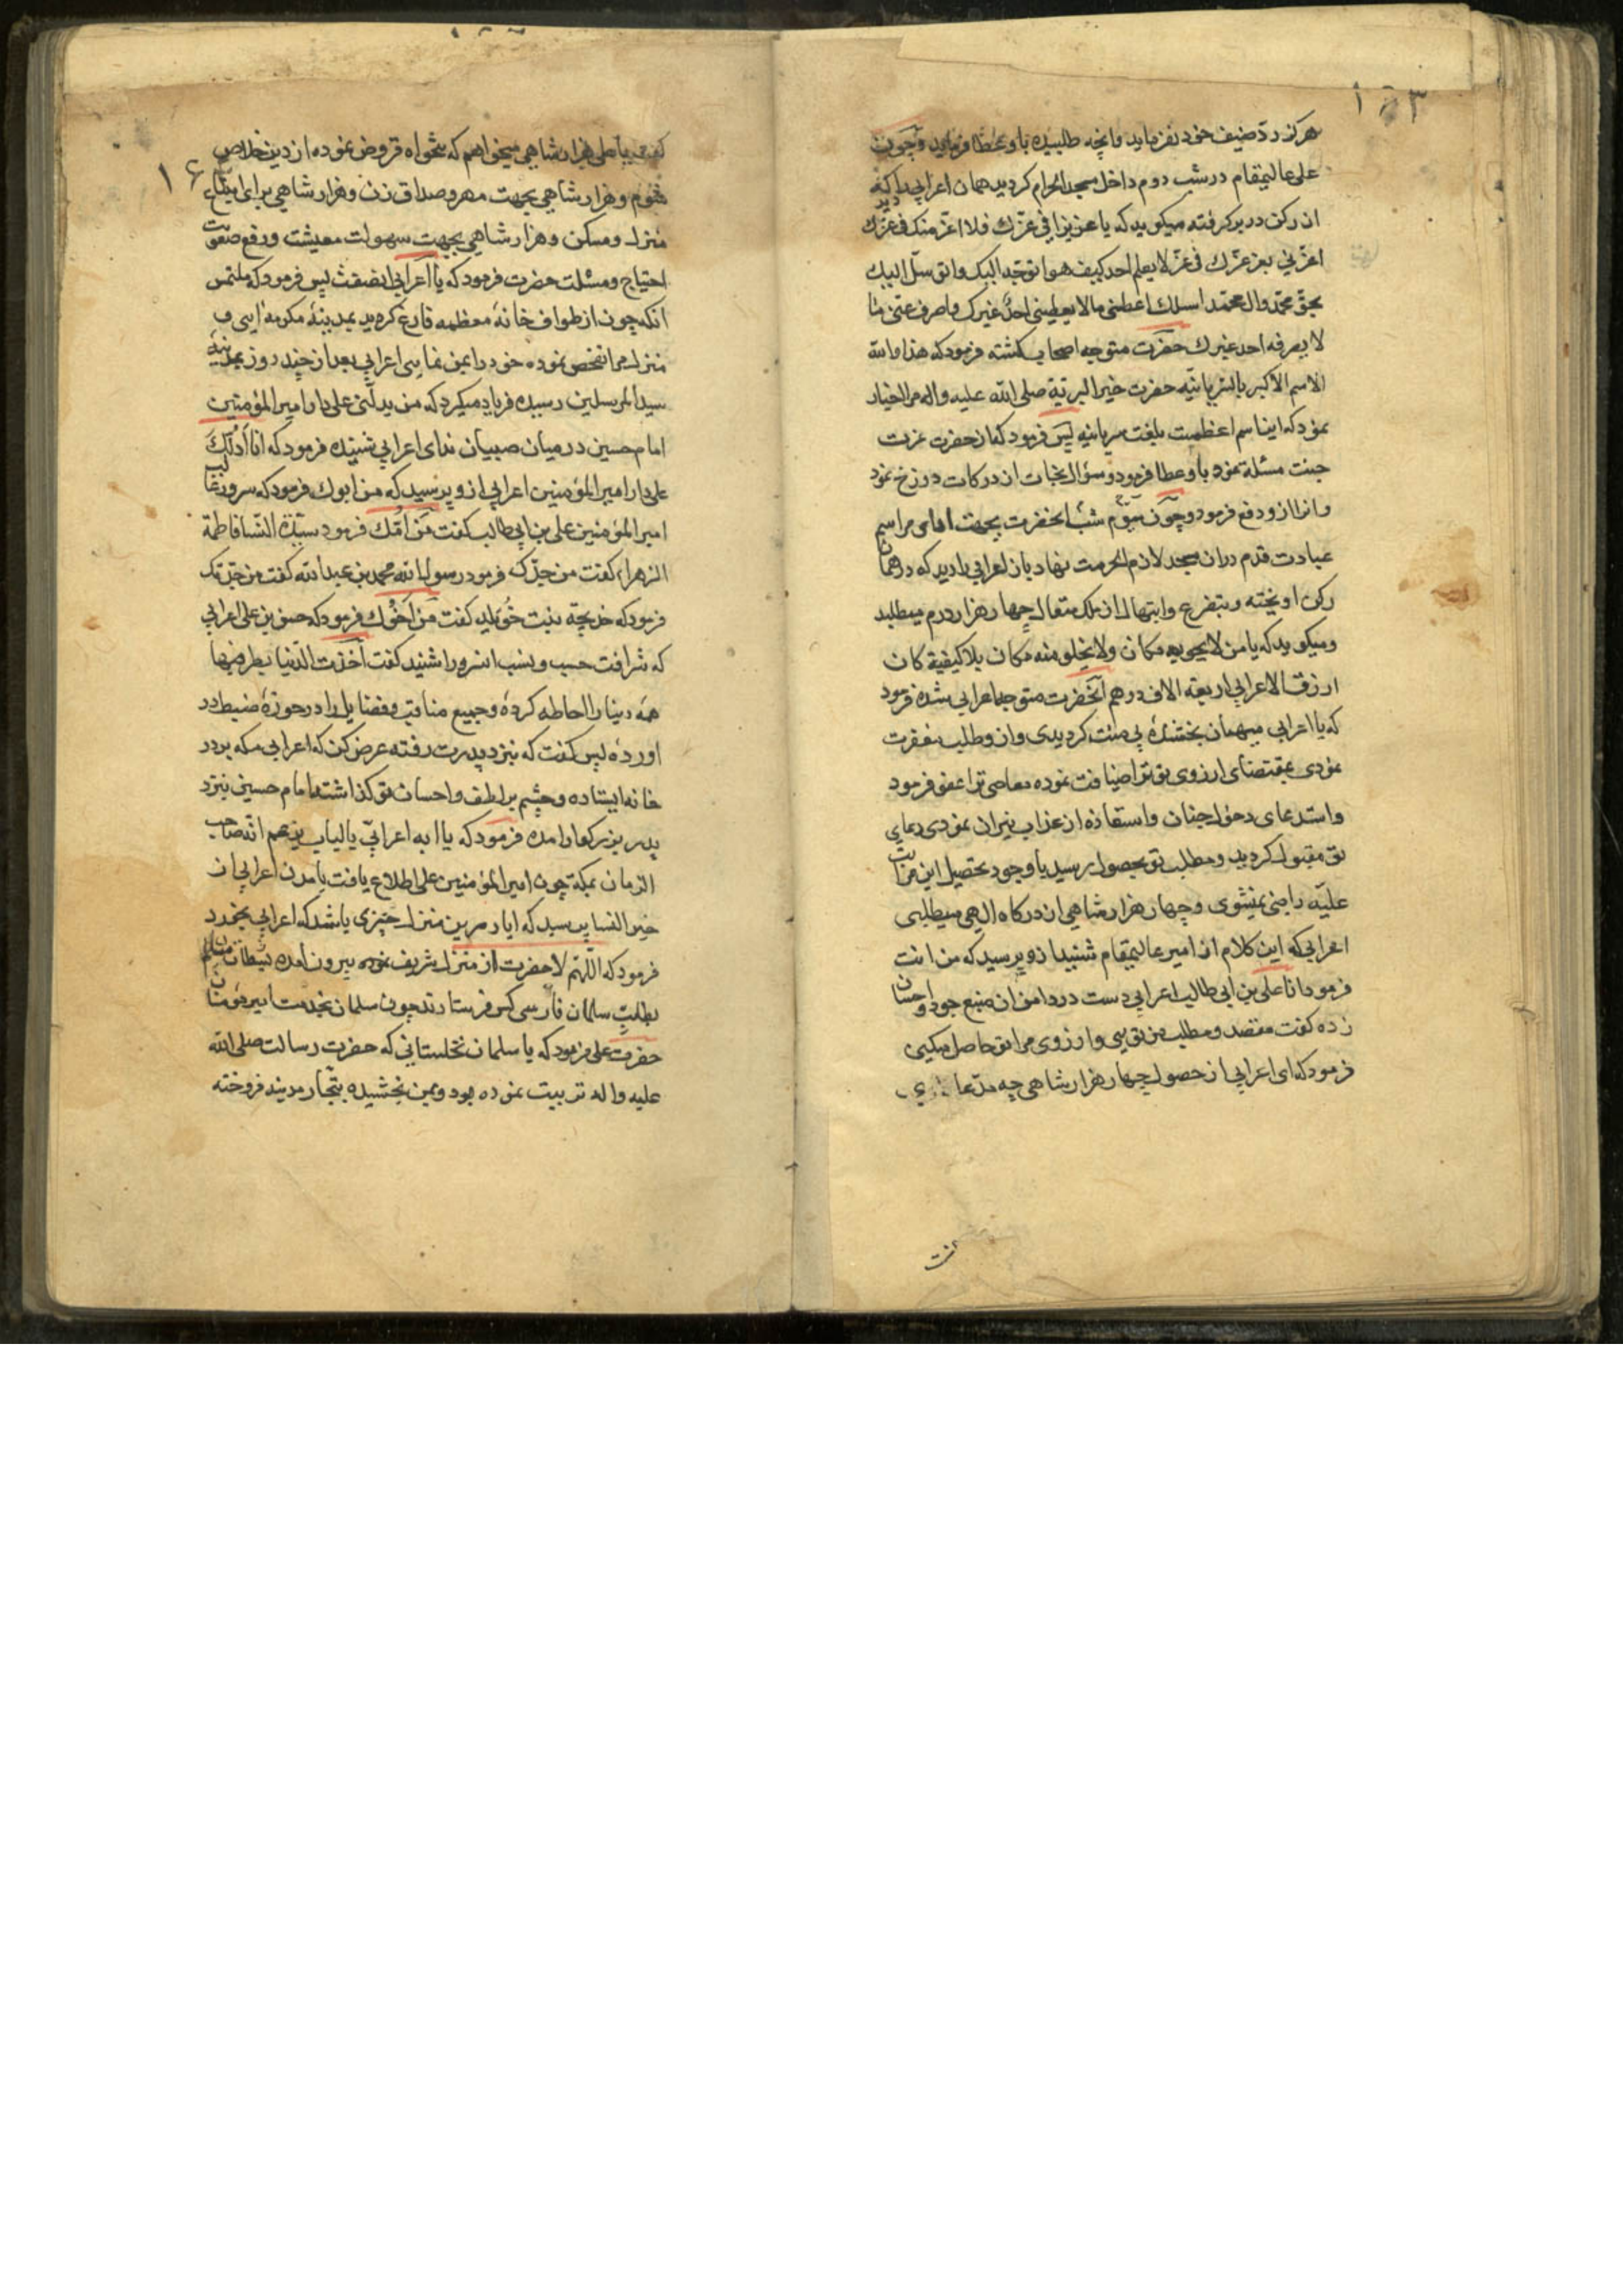 ۱۵۳
هرکز ردّ ضیف خود نفرماید وانچه طلبیده باو عطا فرماید وچون
علی عالیمقام در شب دوم داخل مسجد الحرام کردید همان اعرابی را دید که
ان رکن در بر کرفته میکوید که یا عزیزا فی عزّك فلا اعزّ منك فی عزّك
اعزّنی بعز عزّك فی عزّ لا یعلم احد کیف هو اتوجّه الیك واتوسّل الیك
بحقّ محمّد وال محمّد اسئلك اعطنی مالا یعطینی احدٌ غیرك واصرف عنّی ما
لا یصرفه احد غیرك حضرت متوجه اصحاب کشته فرمود که هذا والله
الاسم الاکبر بالسّریانیّه حضرت خیر البریّة صلی الله علیه واله مرا اخبار
نمود که این اسم اعظمست بلغت سریانیه پس فرمود که از حضرت عزت
جنت مسئلة نمود باو عطا فرمود وسؤال نجات از درکات دوزخ نمود
وانرا ازو دفع فرمود وچون سیّوم شب انحضرت بجهت ادای مراسم
عبادت قدم دران مسجد لازم الحرمت نهاد بازاعرابی را دید که در همان
رکن اویخته وبتضرع وابتهال از ملك متعال چهار هزار درم میطلبد
ومیکوید که یا من لا یحویه مکان ولا یخلو منه مکان بلا کیفیة کان
ارزق الاعرابی اربعة الاف درهم آنحضرت متوجه اعرابی شده فرمود
که یا اعرابی میهمان بخشندهٔ بی منت کردیدی وازو طلب مغفرت
نمودی بمقتضای ارزوی تو ترا ضیافت نموده معاصی ترا عفو فرمود
واستدعای دخول جنان واستعاذه از عذاب نیران نمودی دعای
تو مقبول کردید ومطلب تو بحصول رسید با وجود تحصیل این مراتب
علیّه راضی نمیشوی وچهار هزار شاهی از درکاه الهی میطلبی
اعرابی که این کلام از امیر عالیمقام شنید ازو پرسید که من انت
فرمود انا علی بن ابی طالب اعرابی دست در دامن ان منبع جود واحسان
زده کفت مقصد ومطلب من تویی وارزوی مرا تو حاصل میکنی
فرمود که ای اعرابی از حصول چهار هزار شاهی چه مدّعا داری
کفت
کفت یا علی هزار شاهی میخواهم که بتخواه قروض نموده از دین خلاص
شوم وهزار شاهی بجهت مهر وصداق زن وهزار شاهی برای ابتیاع
منزل ومسکن وهزار شاهی بجهت سهولت معیشت ورفع صعوبت
احتیاج ومسئلت حضرت فرمود که یا اعرابی انصفت پس فرمود که ملتمس
انکه چون از طواف خانهٔ معظمه فارغ کردید بمدینهٔ مکرمه ایی و
منزل مرا تفحص نموده خود را بمن نمایی اعرابی بعد از چند روز بمدینهٔ
سید المرسلین رسیده فریاد میکرد که من یدلّنی علی دار امیر المؤمنین
امام حسین در میان صبیان ندای اعرابی شنیده فرمود که انا ادُلّكَ
علی دار امیر المؤمنین اعرابی ازو پرسید که من ابوك فرمود که سرور غالب
امیر المؤمنین علی بن ابی طالب کفت من اُمّك فرمود سیّدة النّسا فاطمة
الزهراء کفت من جدّك فرمود رسول الله محمد بن عبد الله کفت من جدّتك
فرمود که خدیجة بنت خُوَیلد کفت من اَخُوك فرمود که حسن بن علی اعرابی
که شرافت حسب ونسب انسرور شنید کفت اَخذت الدّنیا بطرفیها
همه دنیا را احاطه کردهٔ وجمیع مناقب وفضایل را در حوزهٔ ضبط در
اوردهٔ پس کفت که نزد پدرت رفته عرض کن که اعرابی مکه بر در
خانه ایستاده وچشم بر لطف واحسان تو کذاشته امام حسین نزد
پدر بزرکوار امده فرمود که یا ابه اعرابیّ بالباب یزعم انّه صاحب
الزمان بمکّة چون امیر المؤمنین علی اطلاع یافت بامدن اعرابی از
خیر النسا پرسید که ایا درین منزل چیزی باشد که اعرابی بخورد
فرمود که اللّهم لا حضرت از منزل شریف نموده بیرون امده
بطلبِ سلمان فارسی کس فرستادند چون سلمان بخدمت امیر مؤمنان
حضرت علی فرمود که یا سلمان نخلستانی که حضرت رسالت صلی الله
علیه واله تربیت نموده بود وبمن بخشیده بتجّار مدینه فروخته